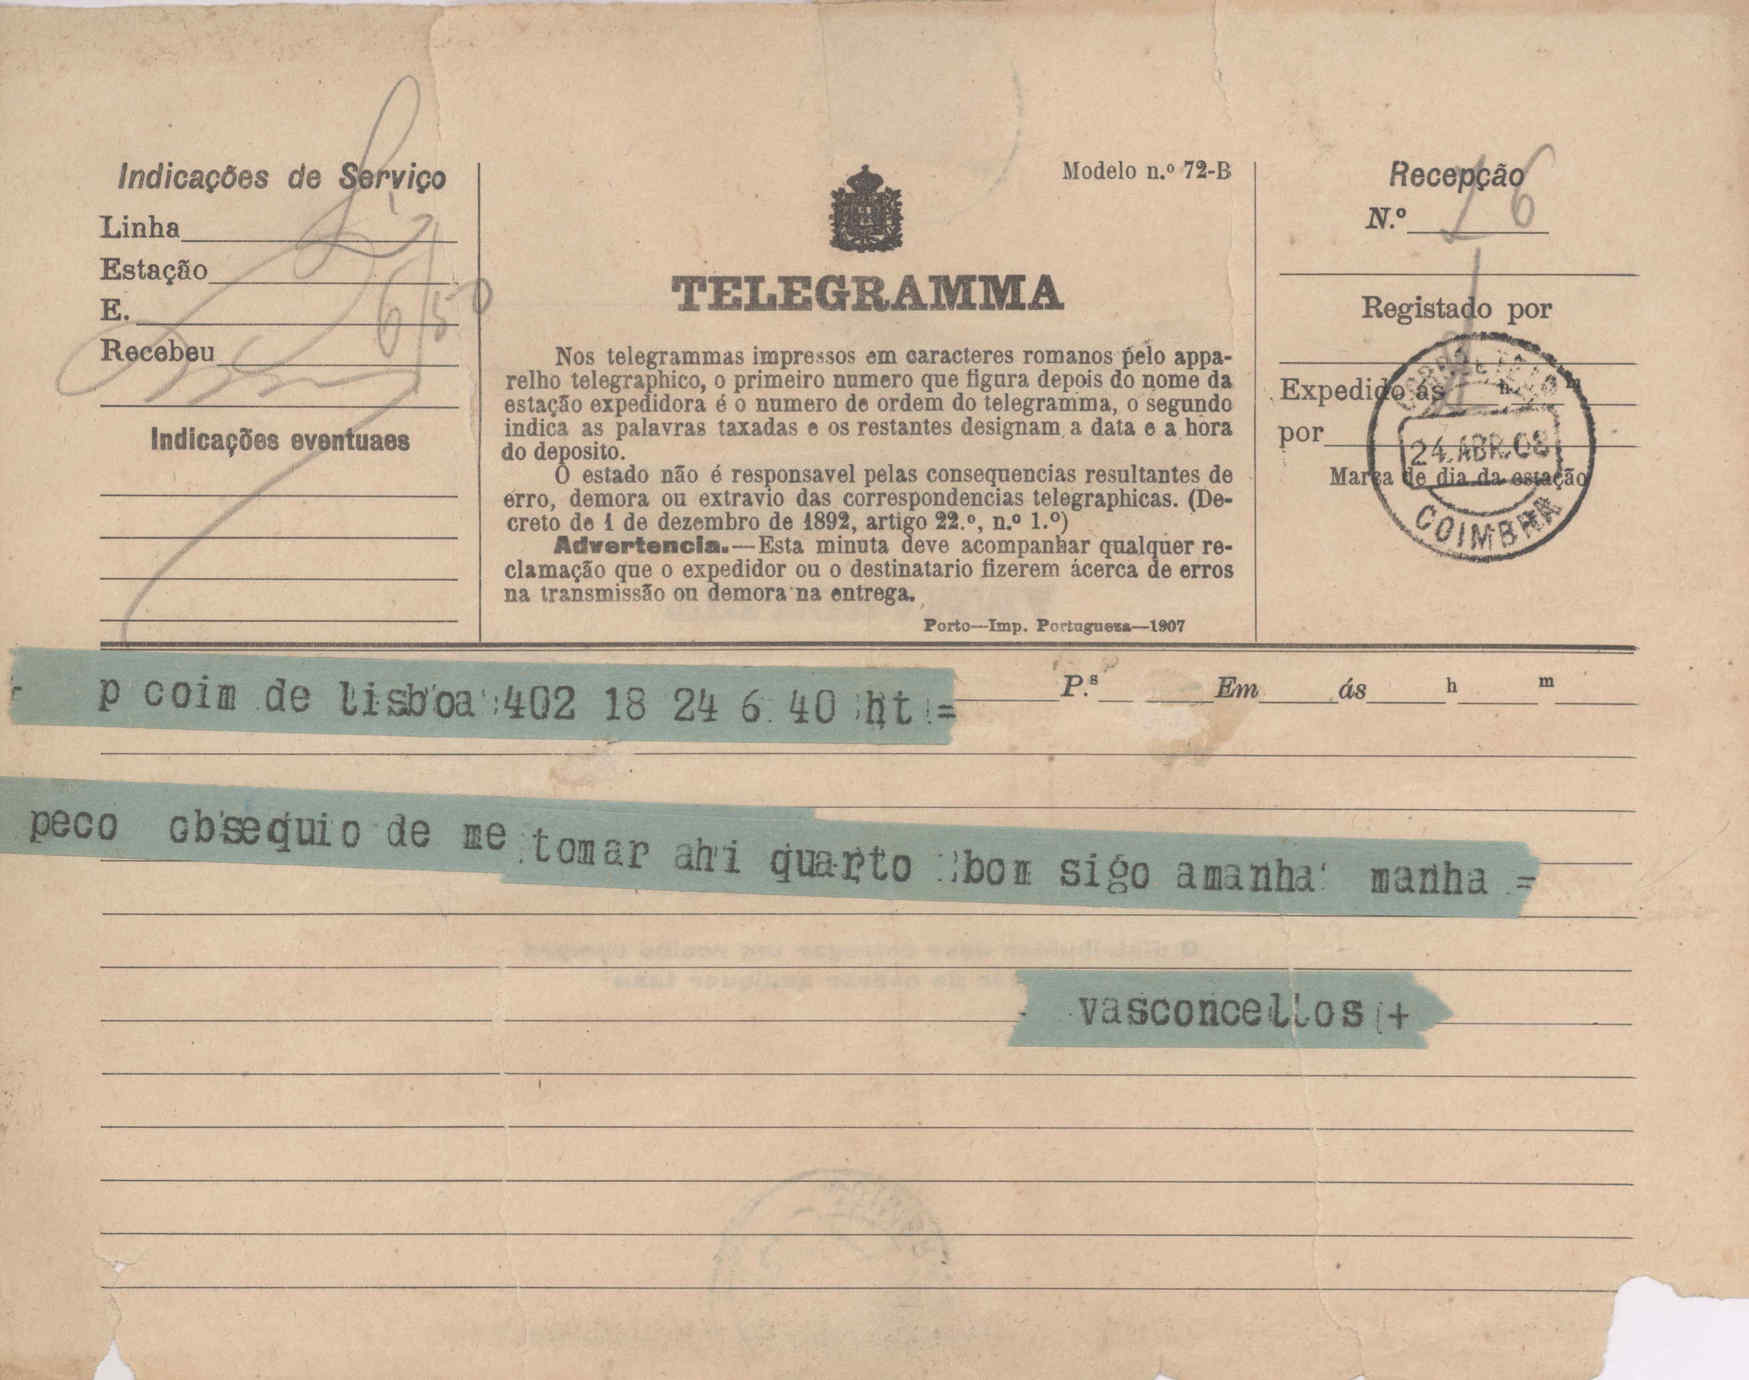 Indicações de Serviço
Linha
Estação
E.
Recebeu
6/50
Indicações eventuaes
Modelo n.º 72-B
TELEGRAMMA
Nos telegrammas impressos em caracteres romanos pelo appa-
relho telegraphico, o primeiro numero que figura depois do nome da
estação expedidora é o numero de ordem do telegramma, o segundo
indica as palavras taxadas e os restantes designam a data e a hora
do deposito.
O estado não é responsavel pelas consequencias resultantes de
erro, demora ou extravio das correspondencias telegraphicas. (De-
creto de 1 de dezembro de 1892, artigo 22.º, n.º 1.º)
Advertencia.—Esta minuta deve acompanhar qualquer re-
clamação que o expedidor ou o destinatario fizerem ácerca de erros
na transmissão ou demora na entrega.
Porto—Imp. Portugueza—1907
Recepção
N.º 16
Registado por
Expedido ás h m
por
Marca de dia da estação
24.ABR.08
COIMBRA
p coim de lisboa 402 18 24 6 40 ht =
P.s Em ás h m
peco obsequio de me tomar ahi quarto bom sigo amanha manha =
vasconcellos +